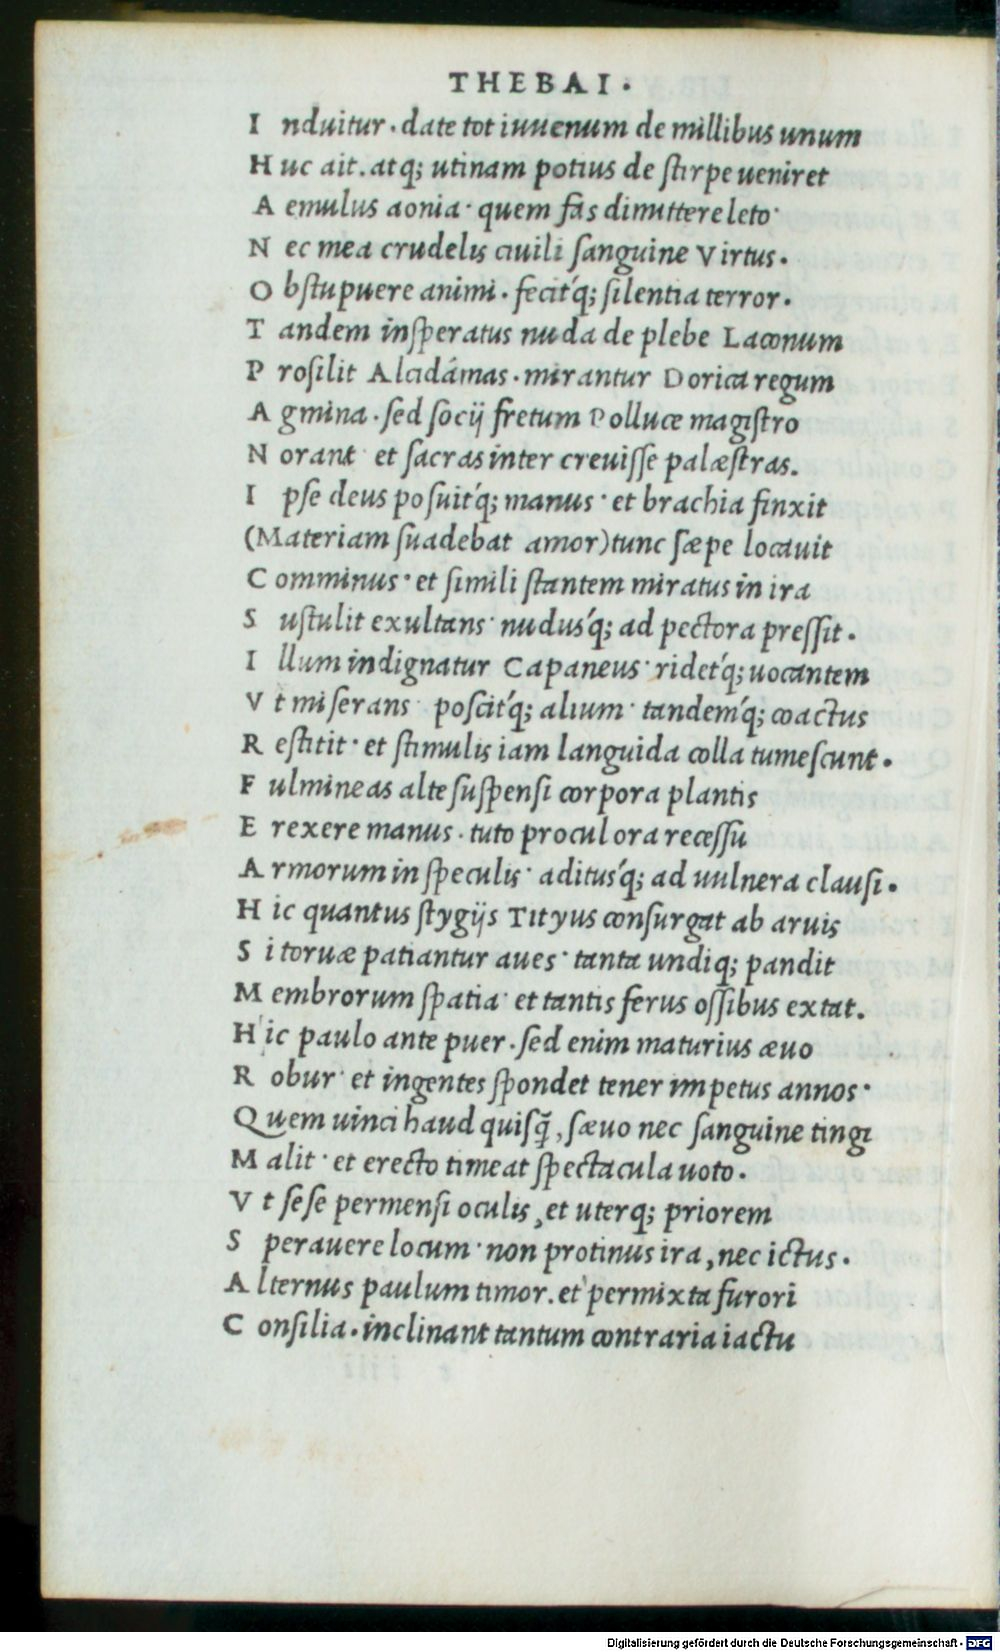 THEBAI.
I nduitur. date tot iuuenum de millibus unum
H uc ait. atq; utinam potius de ſtirpe ueniret
A emulus aonia· quem fas dimittere leto·
N ec mea crudelis ciuili ſanguine Virtus.
O bſtupuere animi. fecit'q; ſilentia terror.
T andem inſperatus nuda de plebe Laconum
P roſilit Alcidámas. mirantur Dorica regum
A gmina. ſed ſocij fretum Polluce magiſtro
N orant et ſacras inter creuiſſe palæſtras.
I pſe deus poſuit'q; manus· et brachia finxit
(Materiam ſuadebat amor) tunc ſæpe locauit
C omminus· et ſimili ſtantem miratus in ira
S uſtulit exultans· nudus'q; ad pectora preſſit.
I llum indignatur Capaneus· ridet'q; uocantem
V t miſerans poſcit'q; alium· tandem'q; coactus
R eſtitit· et ſtimulis iam languida colla tumeſcunt.
F ulmineas alte ſuſpenſi corpora plantis
E rexere manus. tuto procul ora receſſu
A rmorum in ſpeculis· aditus'q; ad uulnera clauſi.
H ic quantus ſtygijs Tityus conſurgat ab aruis
S i toruæ patiantur aues· tanta undiq; pandit
M embrorum ſpatia· et tantis ferus oſſibus extat.
H ic paulo ante puer. ſed enim maturius æuo
R obur· et ingentes ſpondet tener impetus annos·
Quem uinci haud quiſq̃, ſæuo nec ſanguine tingi
M alit· et erecto timeat ſpectacula uoto.
V t ſeſe permenſi oculis, et uterq; priorem
S perauere locum· non protinus ira, nec ictus.
A lternus paulum timor. et permixta furori
C onſilia. inclinant tantum contraria iactu
Digitalisierung gefördert durch die Deutsche Forschungsgemeinschaft - DFG